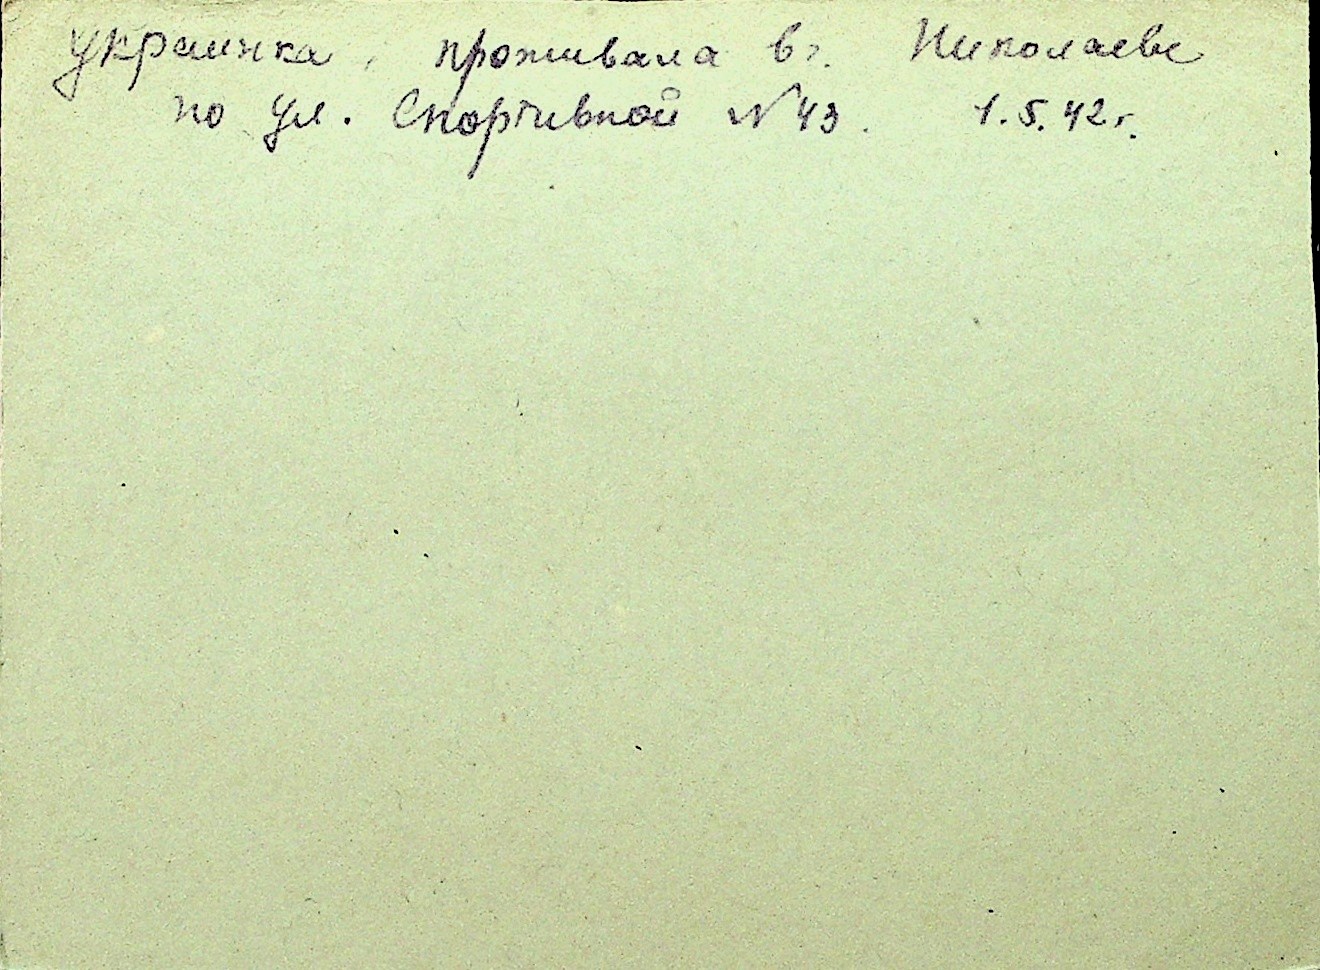 украинка, проживала в г. Николаеве
по ул. Спортивной № 43. 1.5.42 г.